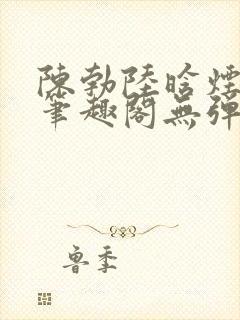 陳勃陸晗煙
筆趣閣無彈
魯季